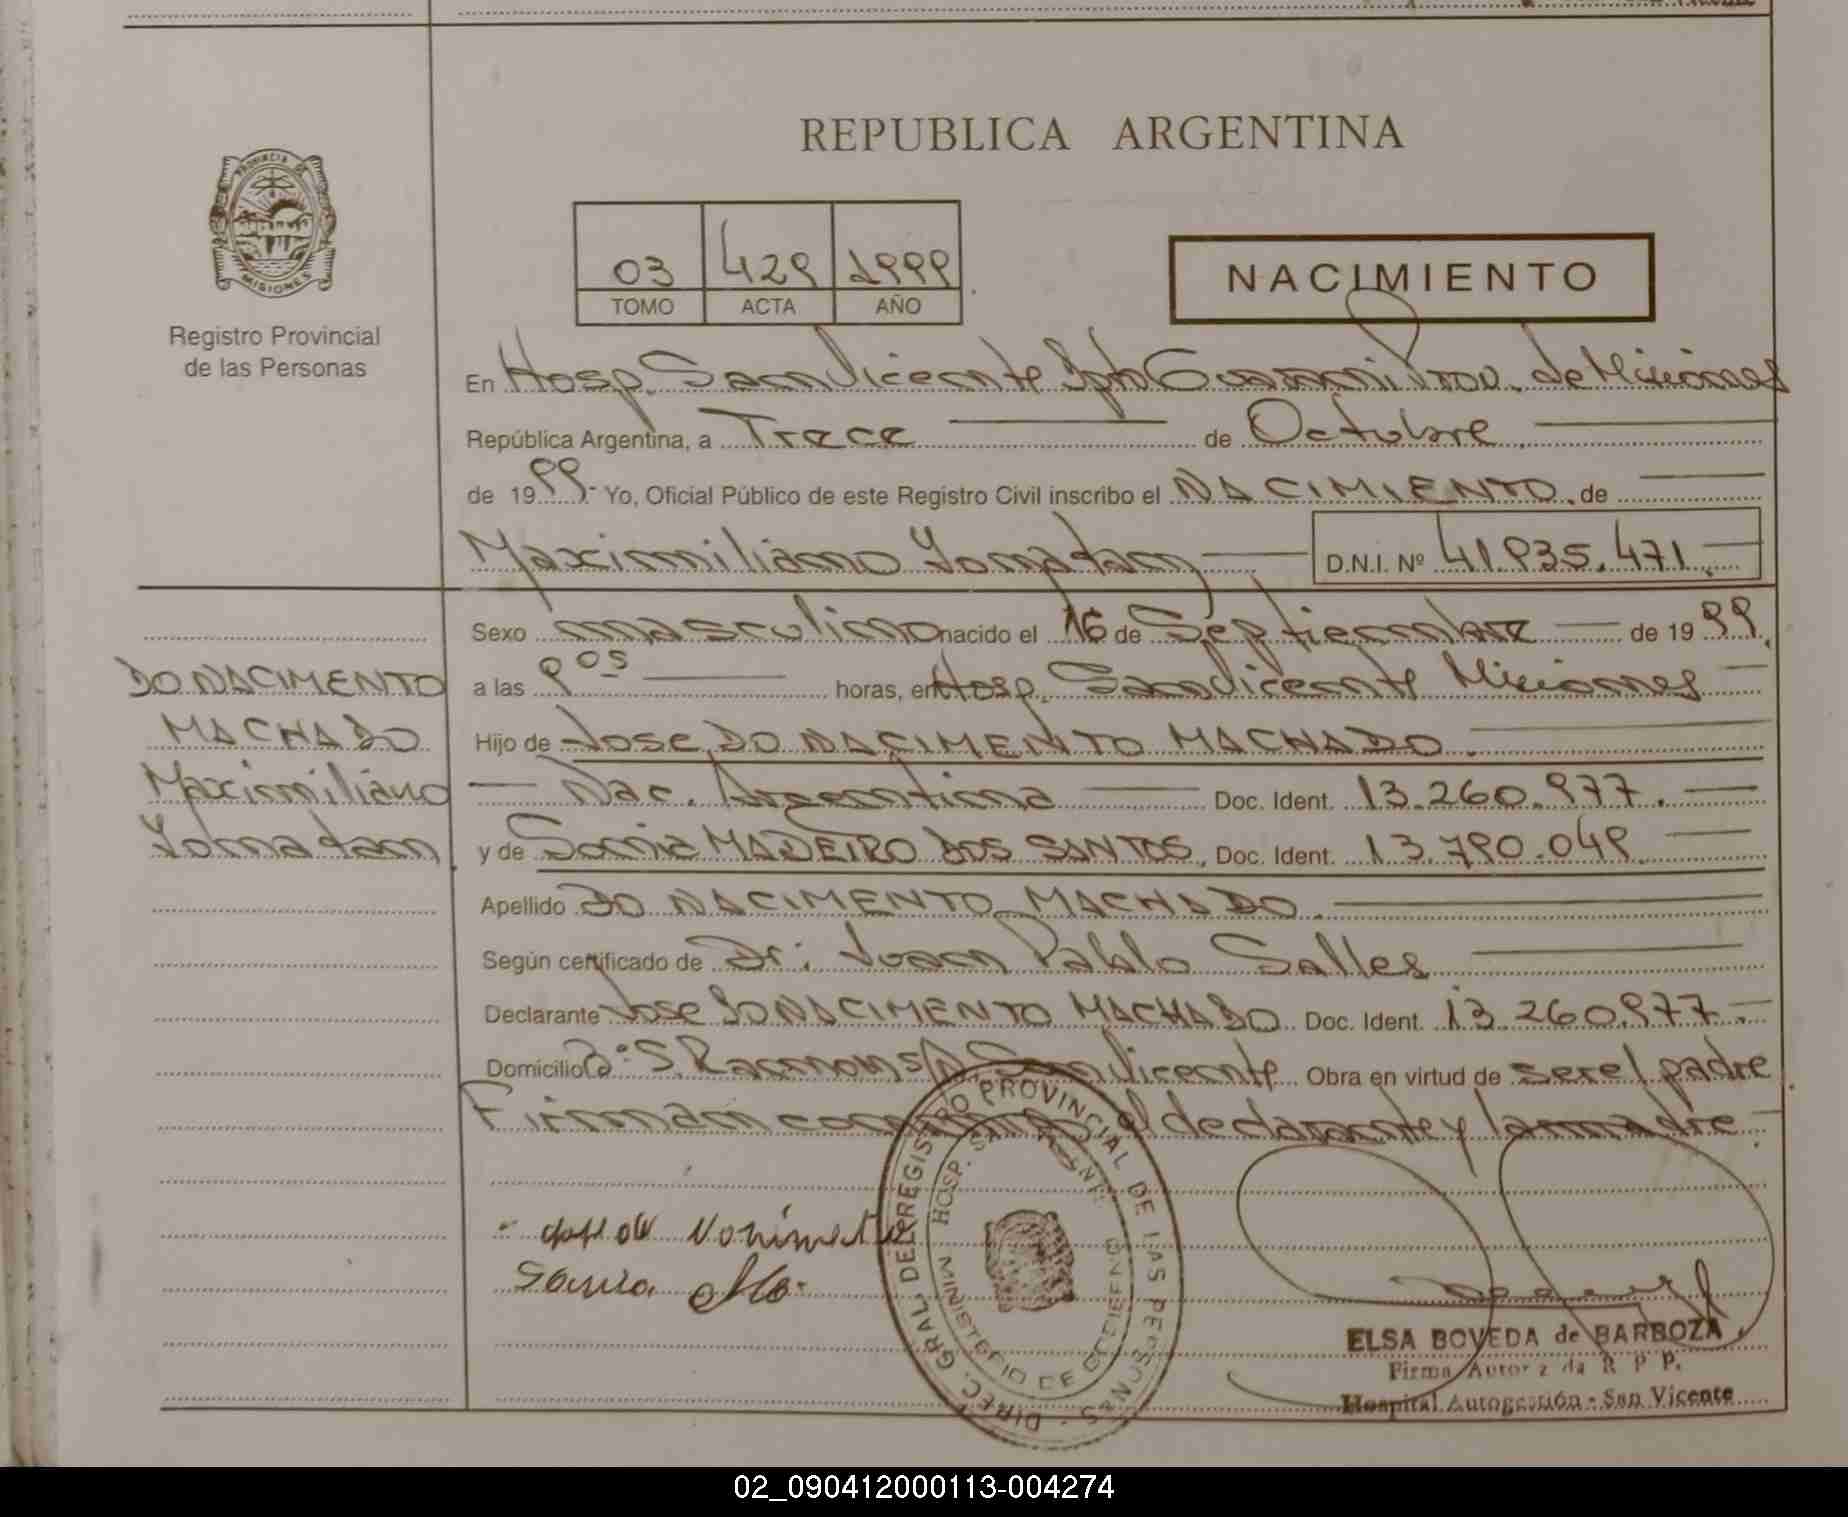 REPUBLICA ARGENTINA
PROVINCIA DE MISIONES
Registro Provincial
de las Personas
03 429 1999
TOMO ACTA AÑO
NACIMIENTO
En Hosp. San Vicente Dpto Guaraní Prov. de Misiones
República Argentina, a Trece de Octubre
de 1999.- Yo, Oficial Público de este Registro Civil inscribo el NACIMIENTO. de
Maximiliano Yonatam D.N.I. Nº 41.935.471.
Sexo masculino nacido el 16 de Septiembre de 1999.
a las 9 05 horas, en Hosp. San Vicente Misiones
Hijo de Jose, DO NACIMENTO MACHADO.
Nac. Argentina Doc. Ident. 13.260.977.
y de Sonia MADEIRO DOS SANTOS, Doc. Ident. 13.790.049.
Apellido DO NACIMENTO MACHADO.
Según certificado de Dr: Juan Pablo Salles
Declarante Jose DO NACIMENTO MACHADO Doc. Ident. 13.260.977.-
Domicilio San Vicente Obra en virtud de ser el padre
Firman conmigo, el declarante y la madre.
DO NACIMENTO
MACHADO
Maximiliano
Yonatam.
Sonia
DIREC. GRAL. DEL REGISTRO PROVINCIAL DE LAS PERSONAS
HOSP. SAN VICENTE
MINISTERIO DE GOBIERNO
ELSA BOVEDA de BARBOZA
Firma Autoriz da R P P.
Hospital Autogestión - San Vicente
02_090412000113-004274